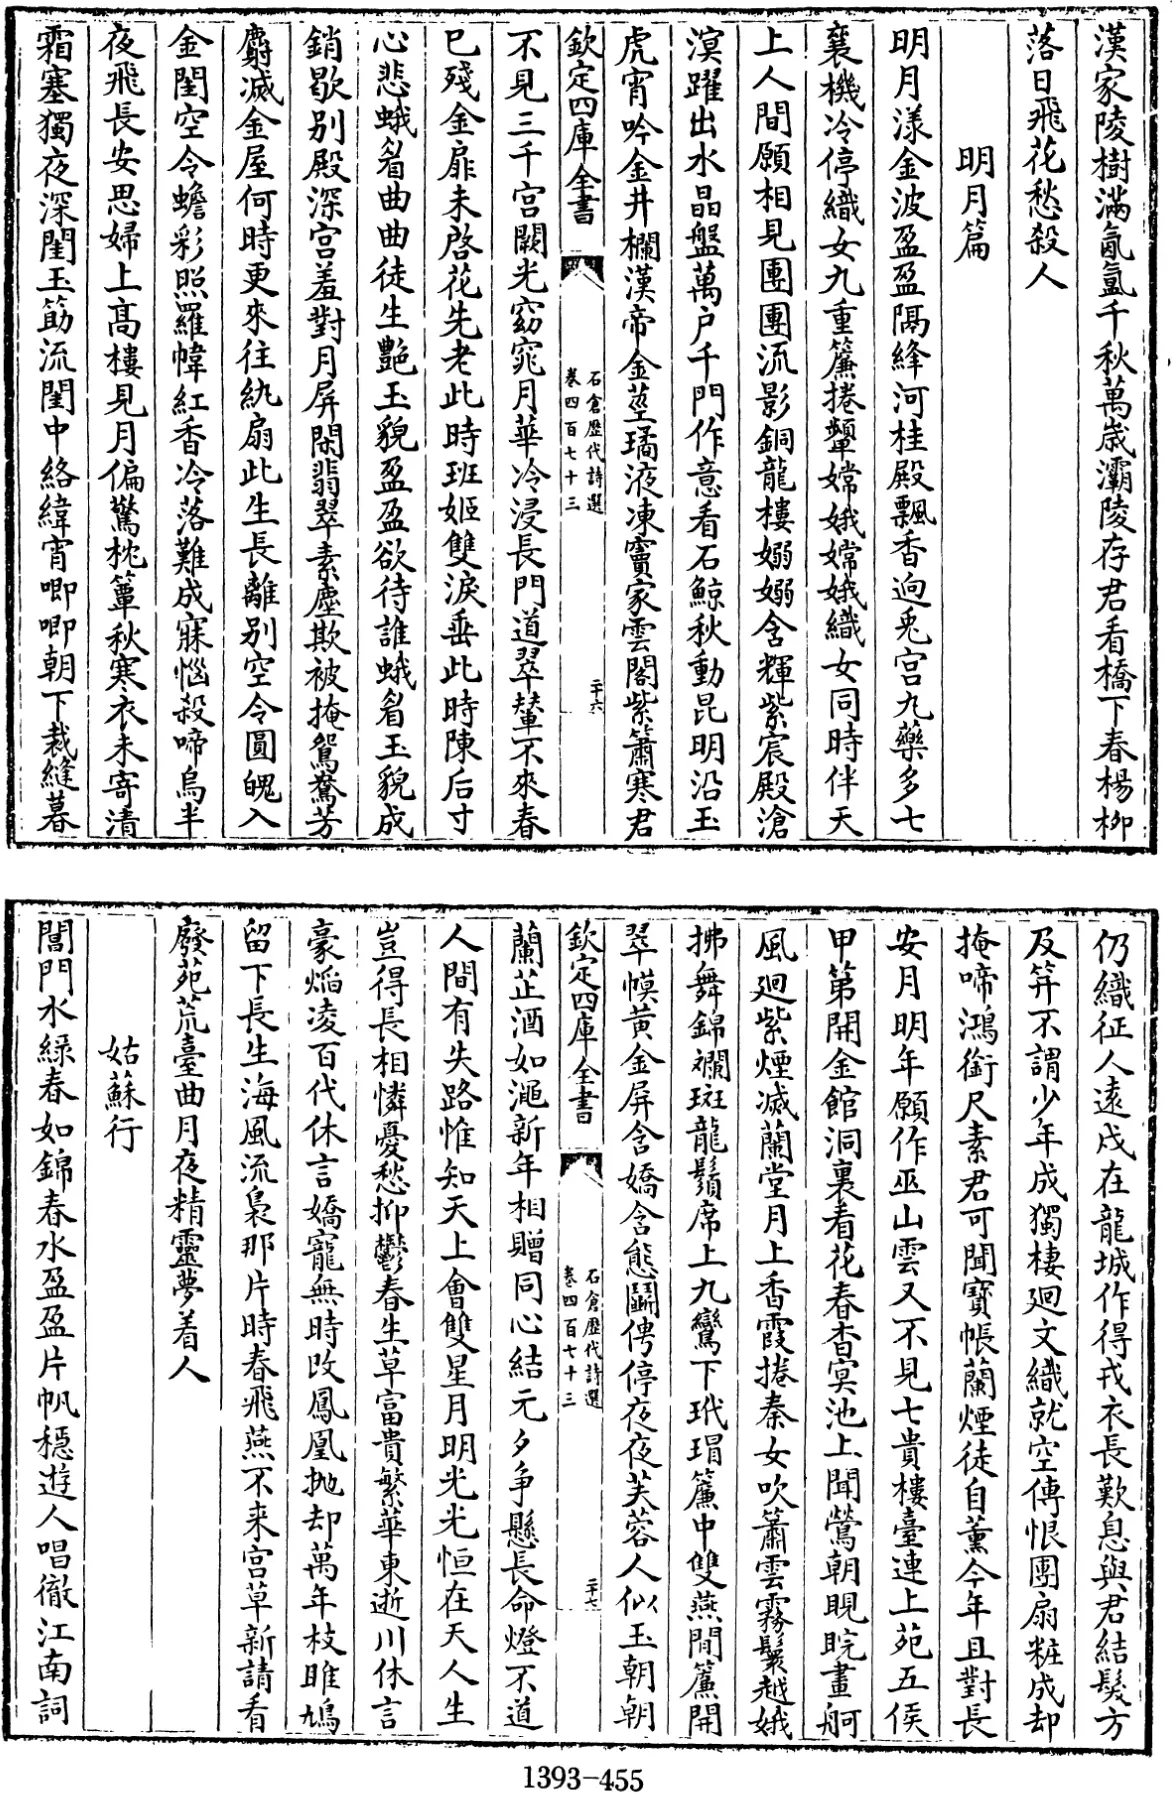 漢家陵樹滿氤氳千秋萬歲灞陵存君看橋下春楊柳
落日飛花愁殺人
明月篇
明月漾金波盈盈隔絳河桂殿飄香迥兎宫九藥多七
襄機冷停織女九重簾捲顰嫦娥嫦娥織女同時伴天
上人間願相見團團流影銅龍樓嫋嫋含輝紫宸殿滄
溟躍出水晶盤萬户千門作意看石鯨秋動昆明沿玉
虎宵吟金井欄漢帝金莖璚液凍竇家雲閣紫簫寒君
欽定四庫全書
石倉歷代詩選
卷四百七十三
二十六
不見三千宫闕光窈窕月華冷浸長門道翠輦不來春
已殘金扉未啓花先老此時班姬雙淚垂此時陳后寸
心悲蛾眉曲曲徒生艷玉貌盈盈欲待誰蛾眉玉貌成
銷歇别殿深宫羞對月屏閑翡翠素塵欺被掩鴛鴦芳
麝滅金屋何時更來往紈扇此生長離别空令圓魄入
金閨空令蟾彩照羅幃紅香冷落難成寐惱殺啼烏半
夜飛長安思婦上髙樓見月偏驚枕簟秋寒衣未寄清
霜塞獨夜深閨玉筯流閨中絡緯宵唧唧朝下裁縫暮
仍織征人遠戍在龍城作得戎衣長歎息與君結髮方
及筓不謂少年成獨棲廻文織就空傳恨團扇粧成却
掩啼鴻銜尺素君可聞寳帳蘭煙徒自薰今年且對長
安月明年願作巫山雲又不見七貴樓臺連上苑五侯
甲第開金館洞裏看花春杳冥池上聞鶯朝睍睆畫舸
風廻紫煙滅蘭堂月上香霞捲秦女吹簫雲霧鬟越娥
拂舞錦斕斑龍鬚席上九鸞下玳瑁簾中雙燕閒簾開
翠幙黄金屏含嬌含態鬭俜停夜夜芙蓉人似玉朝朝
欽定四庫全書
石倉歷代詩選
卷四百七十三
二十七
蘭芷酒如澠新年相贈同心結元夕爭懸長命燈不道
人間有失路惟知天上會雙星月明光光恒在天人生
豈得長相憐憂愁抑鬱春生草富貴繁華東逝川休言
豪燄凌百代休言嬌寵無時改鳳凰抛却萬年枝雎鳩
留下長生海風流裊那片時春飛燕不来宫草新請看
廢苑荒臺曲月夜精靈夢着人
姑蘇行
閶門水緑春如錦春水盈盈片帆穏遊人唱徹江南詞
1393-455